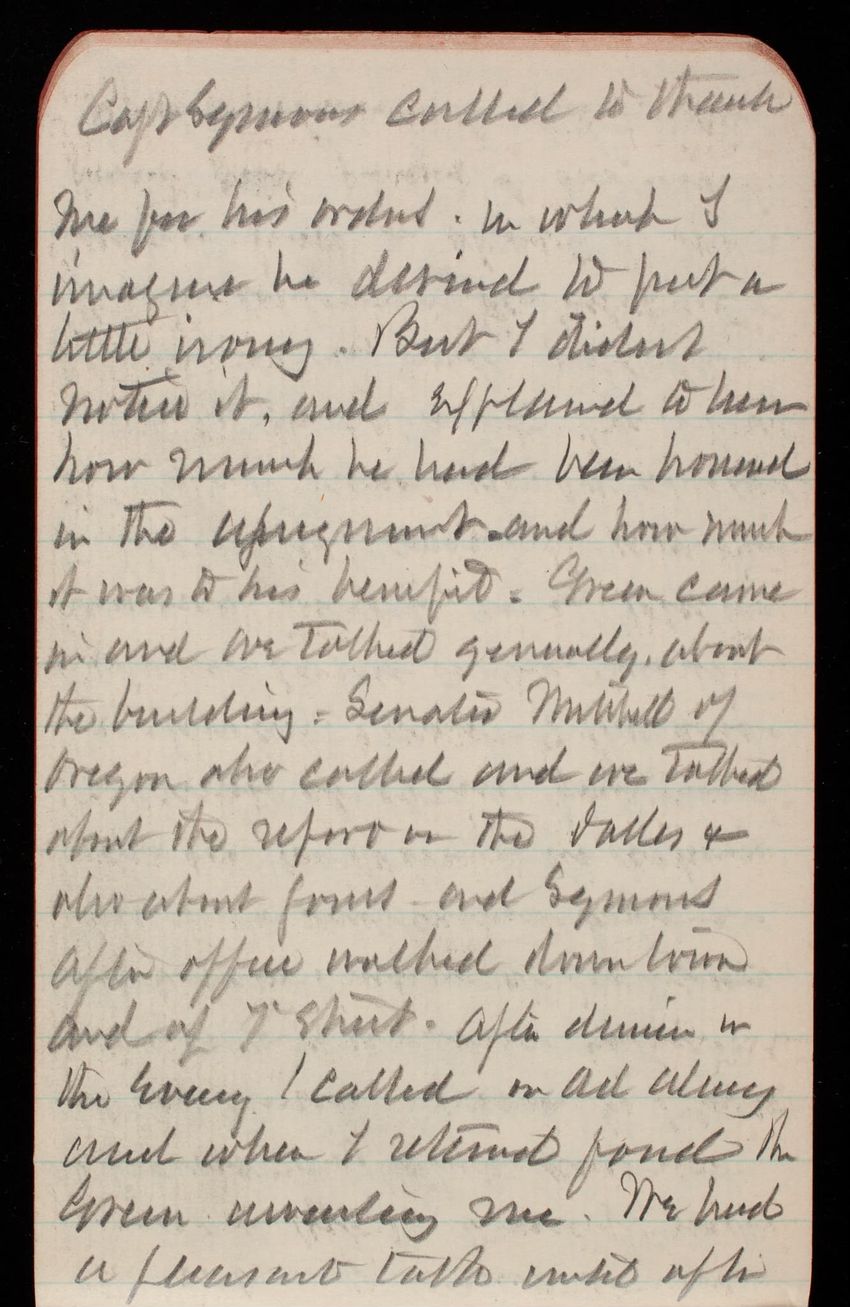 Capt Symons called to thank
me for his orders. in which I
imagine he desired to put a
little irony. But I didnt
notice it, and explained to him
how much he had been honored
in the assignment and how much
it was to his benefit. Green came
in and we talked generally. about
the building. Senator Mitchell of
Oregon also called and we talked
about the report on the Dalles &
also about Jones and Symons
After office walked down town
and up 7 Street. After dinner in
the Evening I called on
and when I returned found the
Green awaiting me. We had
a pleasant talk until after